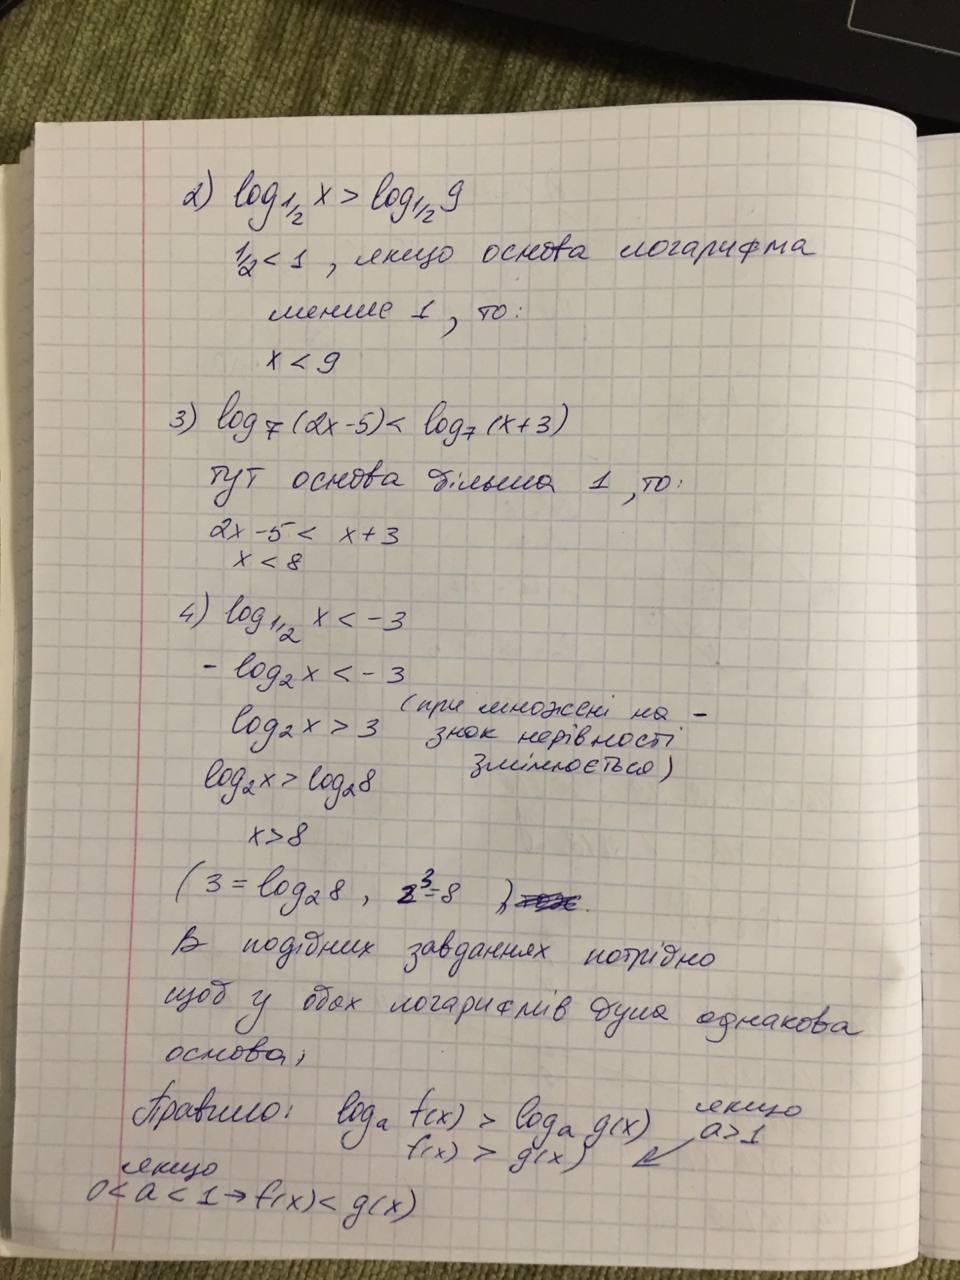 2) log1/2 x > log1/2 9
1/2 < 1, якщо основа логарифма
менше 1, то:
x < 9
3) log7 (2x-5) < log7 (x+3)
тут основа більша 1, то:
2x-5 < x+3
x < 8
4) log1/2 x < -3
- log2 x < -3
log2 x > 3 (при множені на -
знак нерівності
змінюється)
log2 x > log2 8
x > 8
(3 = log2 8, 2³=8)
В подібних завданнях потрібно
щоб у обох логарифмів була однакова
основа,
Правило: loga f(x) > loga g(x) якщо a>1
f(x) > g(x)
якщо
0 < a < 1 → f(x) < g(x)